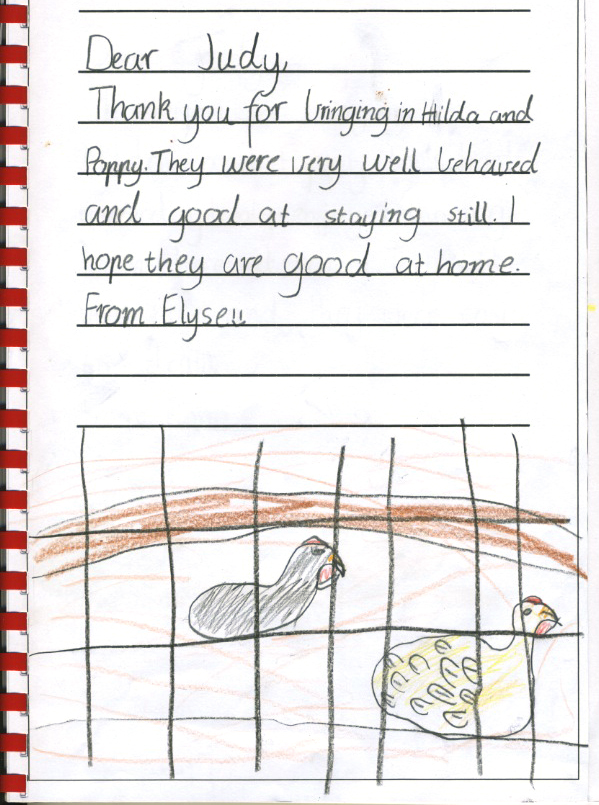 Dear Judy,
Thank you for bringing in Hilda and
Poppy. They were very well behaved
and good at staying still. I
hope they are good at home.
From Elyse!!